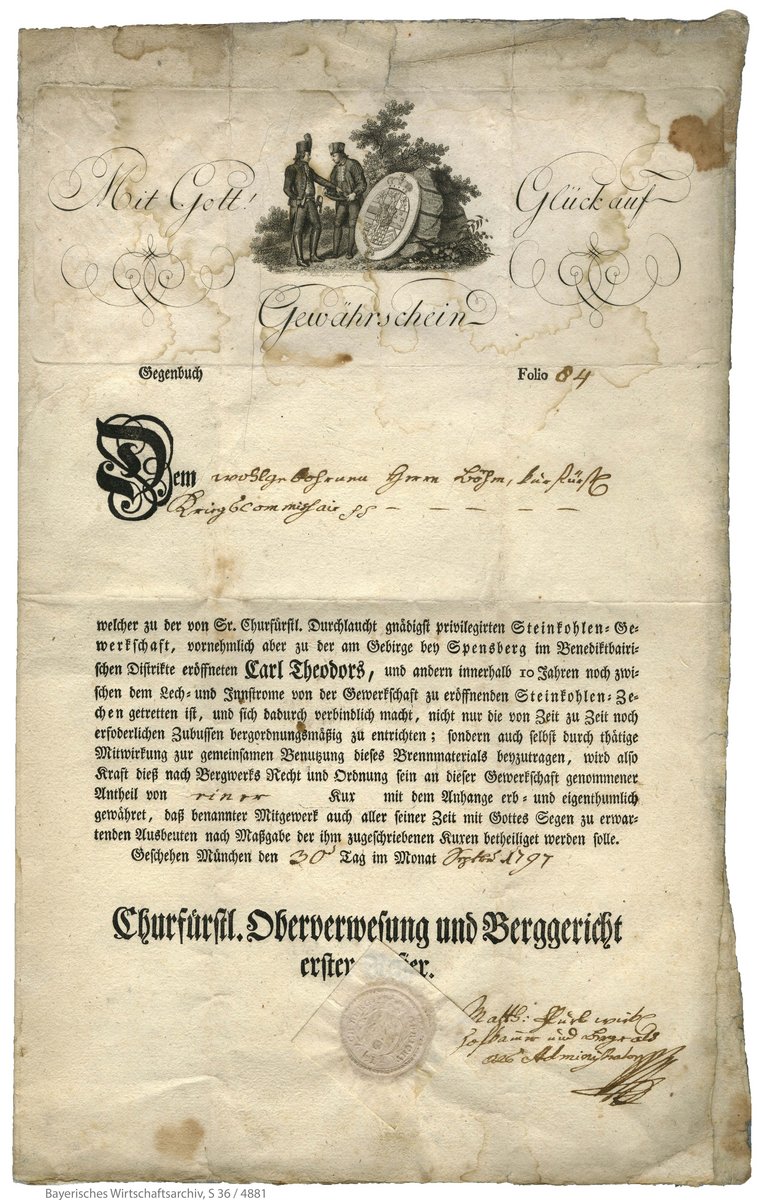 Mit Gott! Glück auf
Gewährschein
Gegenbuch Folio 84
Dem wohlgebohrnen Herrn Böhm, kurfürstl
Kriegscommissair
welcher zu der von Sr. Churfürstl. Durchlaucht gnädigst privilegirten Steinkohlen-Ge-
werkschaft, vornehmlich aber zu der am Gebirge bey Spensberg im Benediktbairi-
schen Distrikte eröffneten Carl Theodors, und andern innerhalb 10 Jahren noch zwi-
schen dem Lech- und Innstrome von der Gewerkschaft zu eröffnenden Steinkohlen-Ze-
chen getretten ist, und sich dadurch verbindlich macht, nicht nur die von Zeit zu Zeit noch
erforderlichen Zubussen bergordnungsmäßig zu entrichten; sondern auch selbst durch thätige
Mitwirkung zur gemeinsamen Benutzung dieses Brennmaterials beyzutragen, wird also
Kraft dieß nach Bergwerks Recht und Ordnung sein an dieser Gewerkschaft genommener
Antheil von einer Kux mit dem Anhange erb- und eigenthumlich
gewähret, daß benannter Mitgewerk auch aller seiner Zeit mit Gottes Segen zu erwar-
tenden Ausbeuten nach Maßgabe der ihm zugeschriebenen Kuxen betheiliget werden solle.
Geschehen München den 30 Tag im Monat 1797
Churfürstl. Oberverwesung und Berggericht
erster
Matth:
und Bergrath
als Administrator
Bayerisches Wirtschaftsarchiv, S 36 / 4881